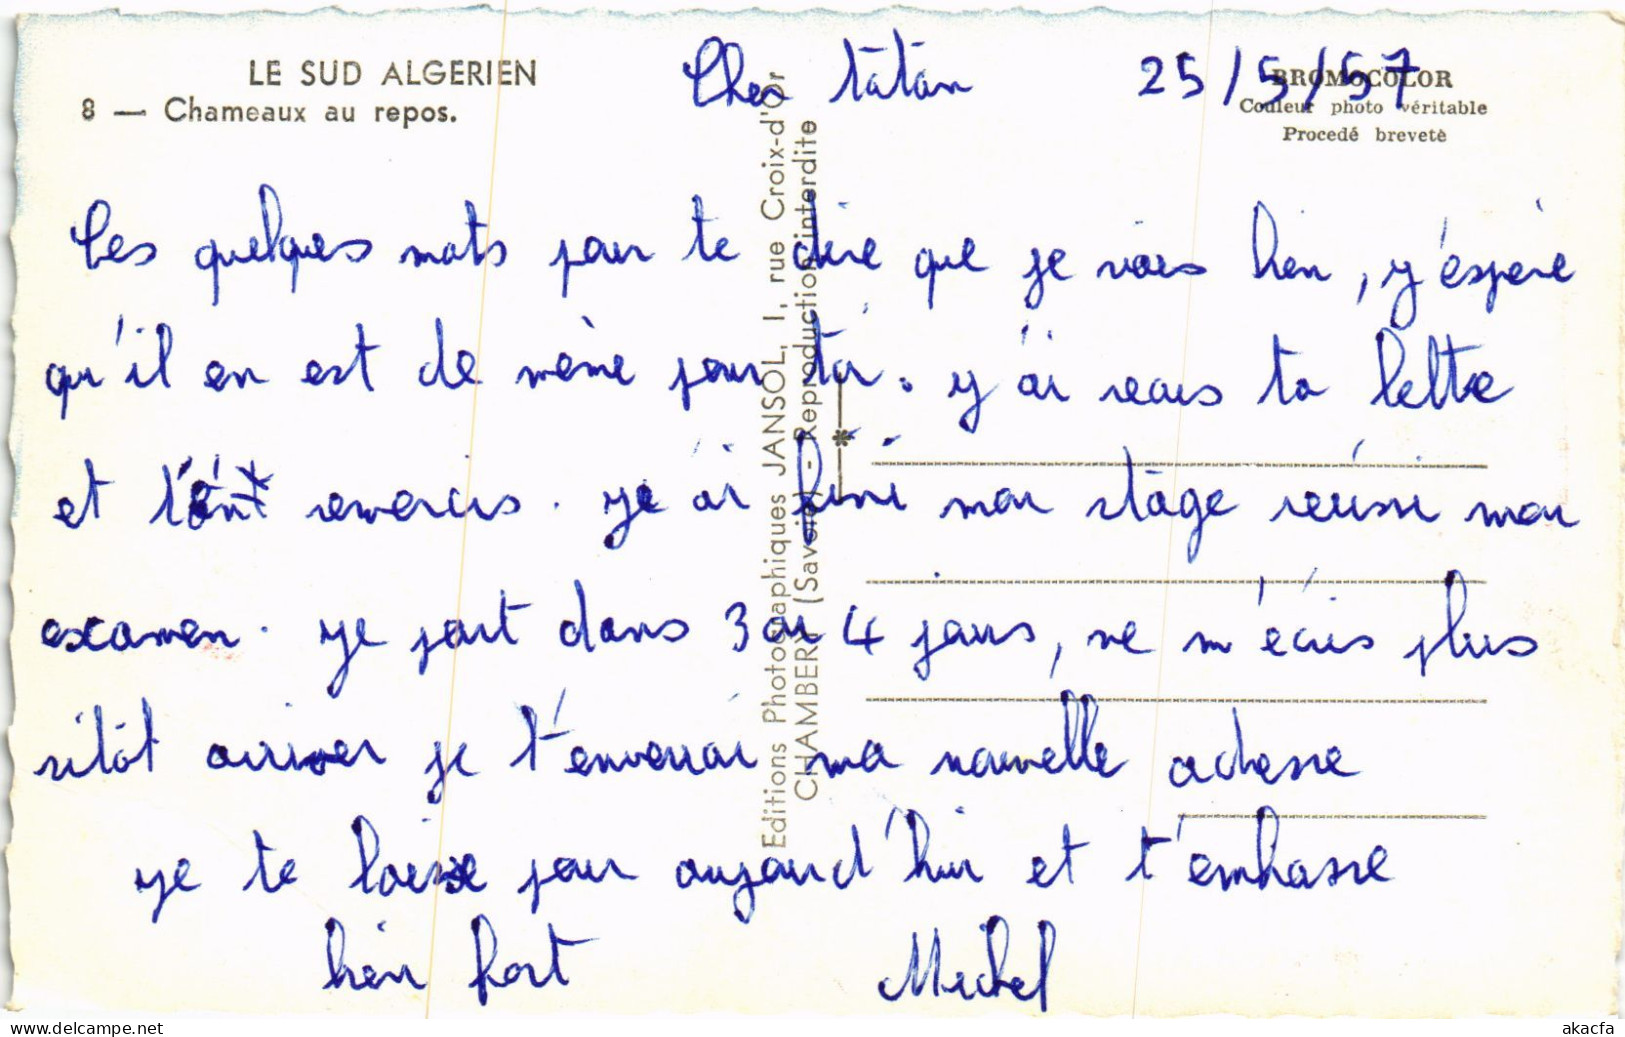 LE SUD ALGERIEN
8 — Chameaux au repos.
BROMOCOLOR
Couleur photo véritable
Procedé breveté
Editions Photographiques JANSOL, 1, rue Croix-d'Or
CHAMBERY (Savoie) - Reproduction interdite
Cher tātān 25/5/57
Ces quelques mots pour te dire que je vais bien, j'éspère
qu'il en est de même pour toi. j'ai recus ta lettre
et t'en remercis. je ai fini mon stage réussi mon
examen. je part dans 3 ou 4 jours, ne m'écris plus
sitôt arriver je t'enverrai ma nouvelle adresse
je te laisse pour aujourd'hui et t'embrasse
bien fort Michel
delcampe.net
akacfa